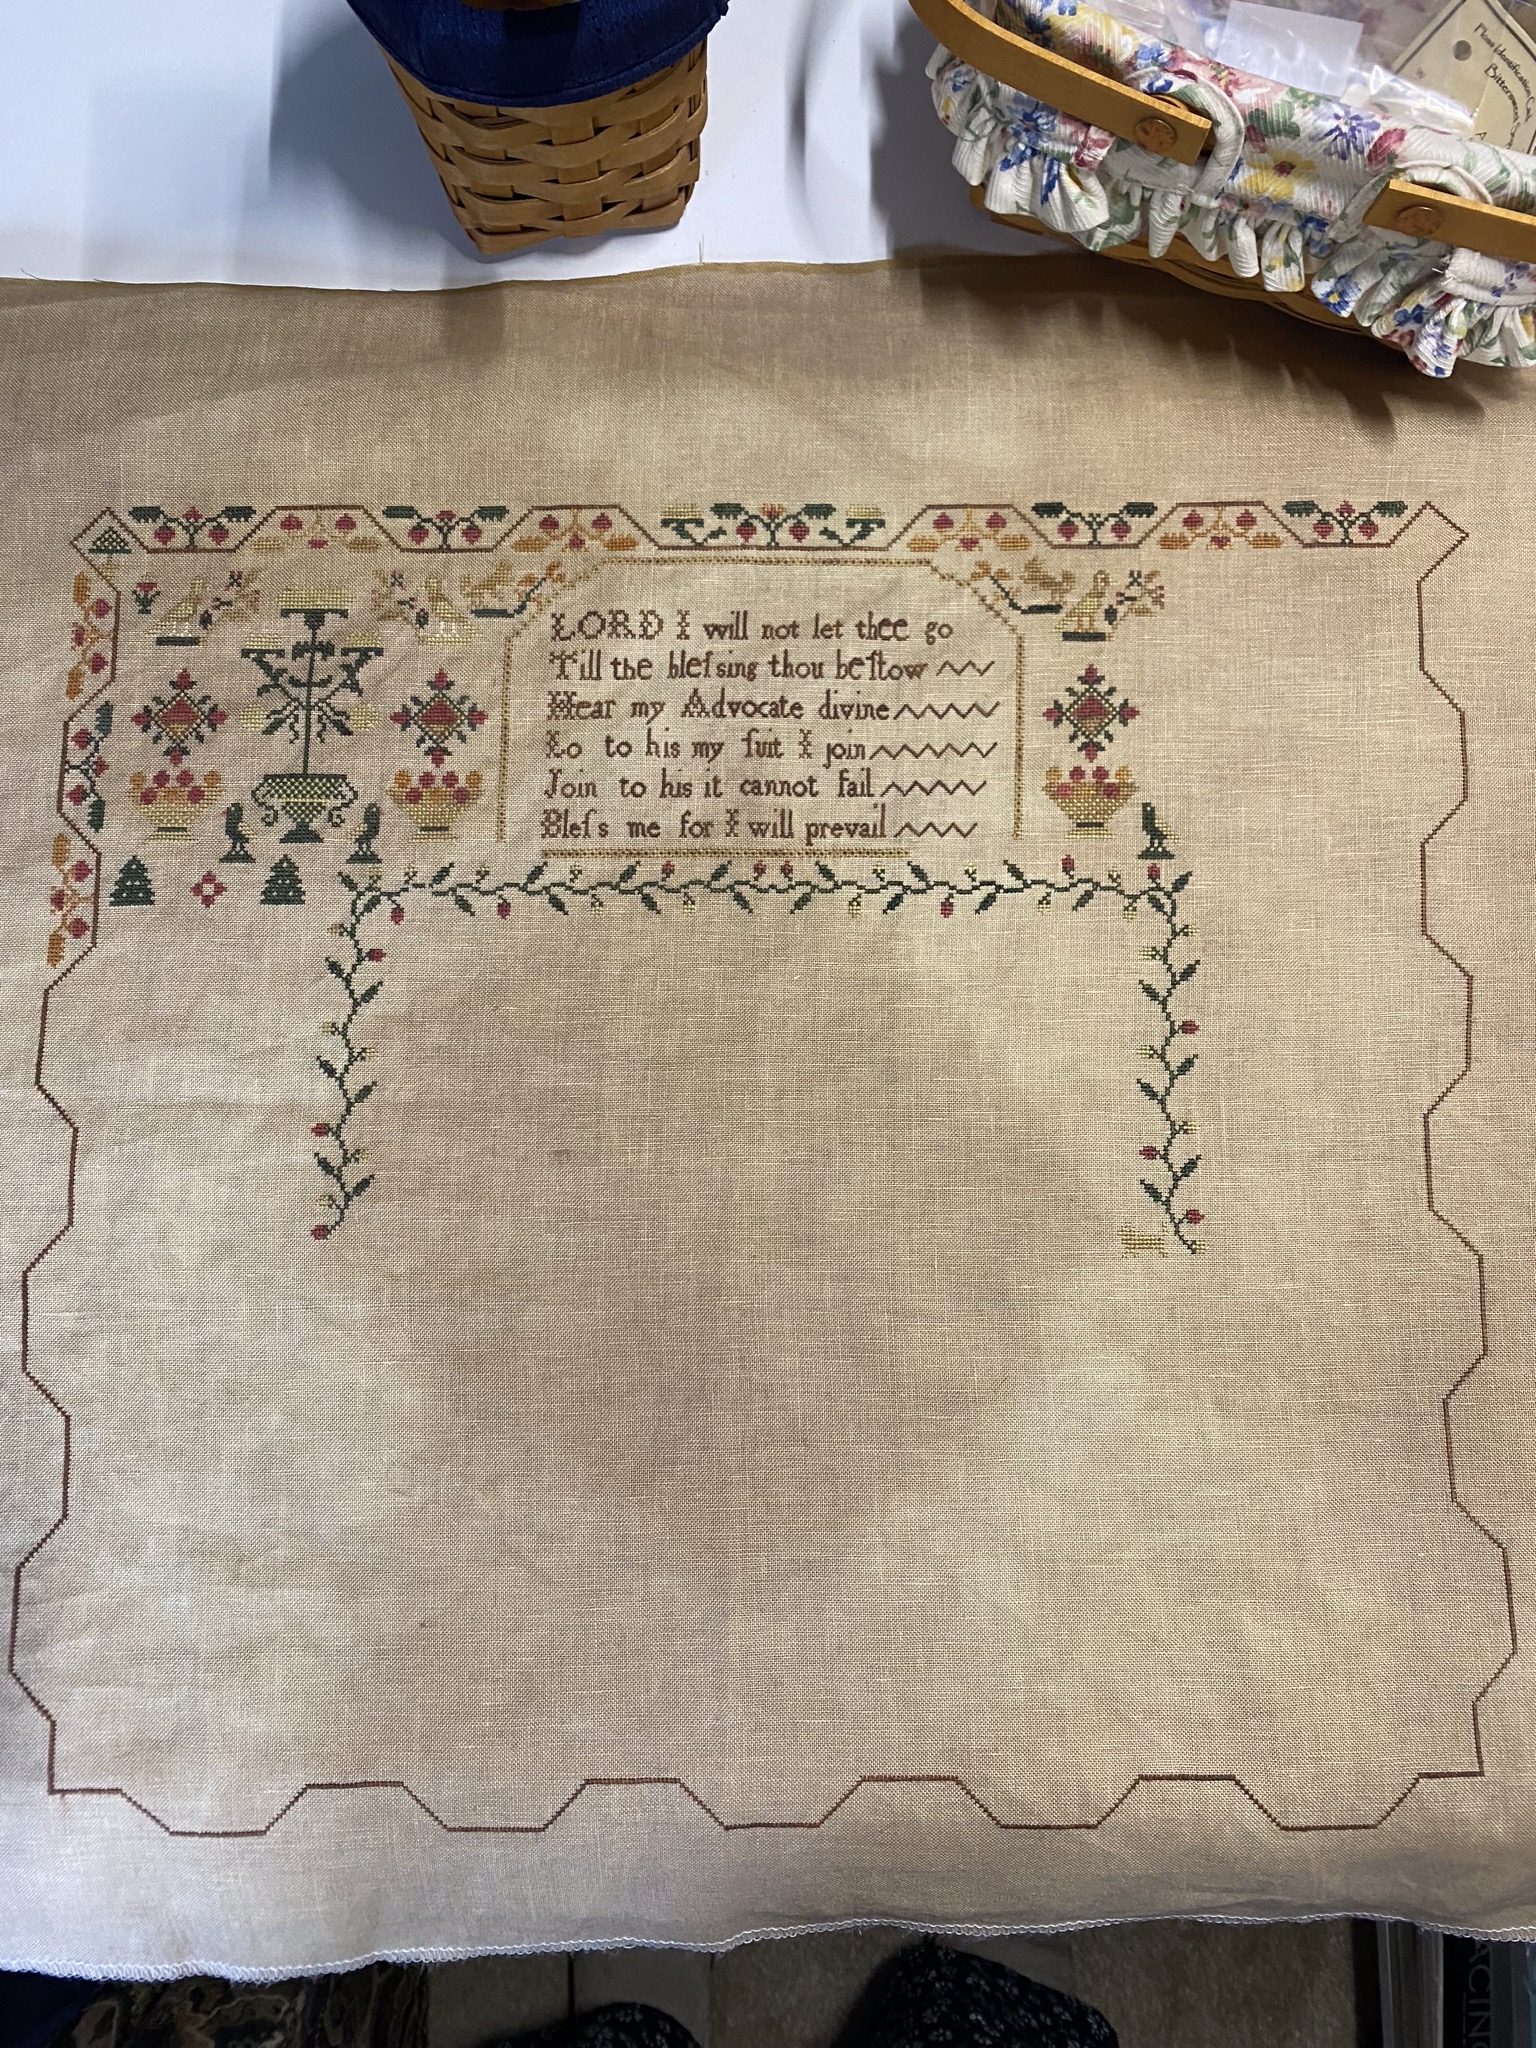 Please Identification
Bittersweet
LORD I will not let thee go
Till the bleſsing thou beſtow
Hear my Advocate divine
Lo to his my ſuit I join
Join to his it cannot fail
Bleſs me for I will prevail